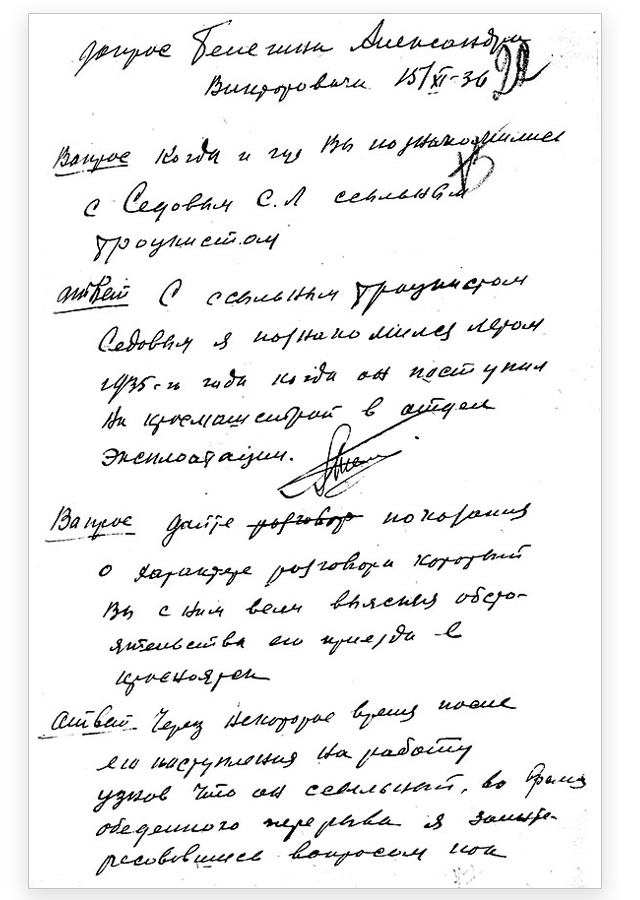 допрос Телегина Александра
Викторовича 15/XI-36
22
Вапрос Когда и где Вы познакомились
с Седовым С.Л ссыльным
троцкистом
Атвет С ссыльным троцкистом
Седовым я познакомился летом
1935-г года когда он поступил
На красмашстрой в атдел
Эксплоатации.
Вапрос дайте разговор показания
о характере разговора который
Вы с ним вели выясняя обсто-
ятельства его приезда в
Красноярск
Атвет Через Некоторое время после
его поступления На работу
узнов что он ссыльный, во время
обеденного перерыва я заинте-
ресововшись вопросом